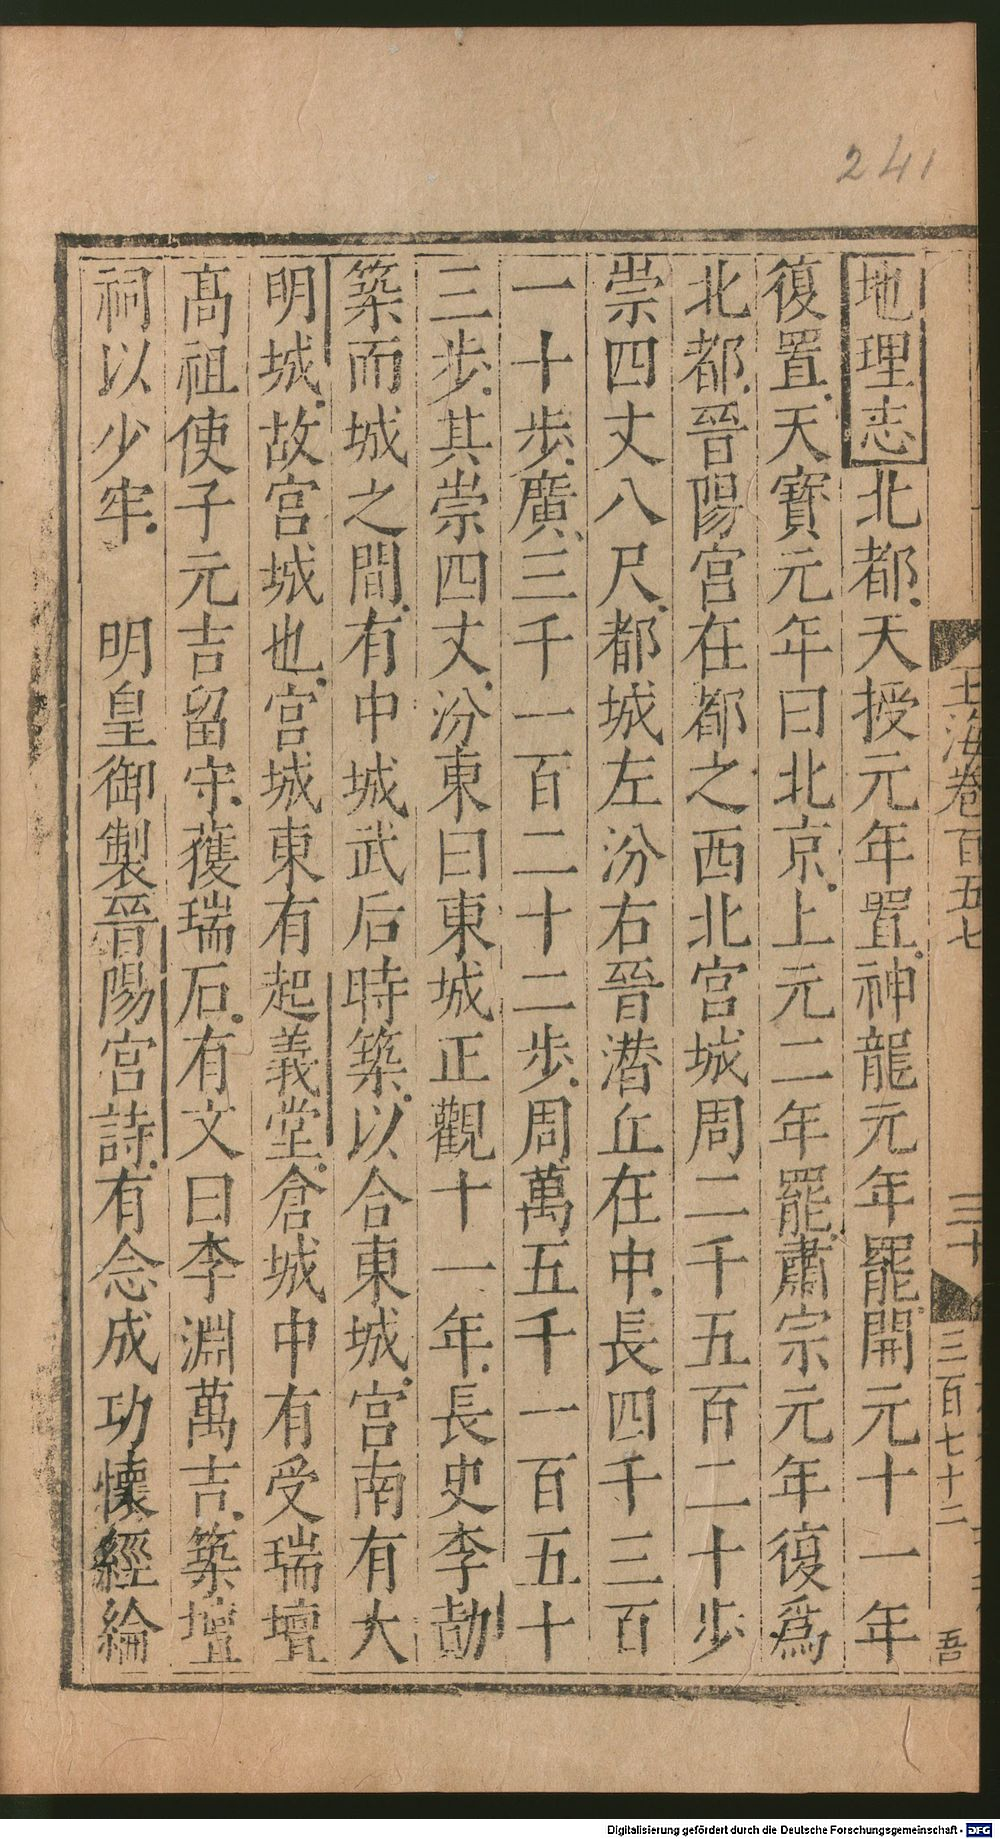 241
玉海卷百五七
三十
三百七十二
吾
地理志北都天授元年置神龍元年罷開元十一年
復置天寶元年曰北京上元二年罷肅宗元年復爲
北都晉陽宮在都之西北宮城周二千五百二十步
崇四丈八尺都城左汾右晉潛丘在中長四千三百
一十步廣三千一百二十二步周萬五千一百五十
三步其崇四丈汾東曰東城正觀十一年長史李勣
築而城之間有中城武后時築以合東城宮南有大
明城故宮城也宮城東有起義堂倉城中有受瑞壇
高祖使子元吉留守獲瑞石有文曰李淵萬吉築壇
祠以少牢 明皇御製晉陽宮詩有念成功懷經綸
Digitalisierung gefördert durch die Deutsche Forschungsgemeinschaft - DFG